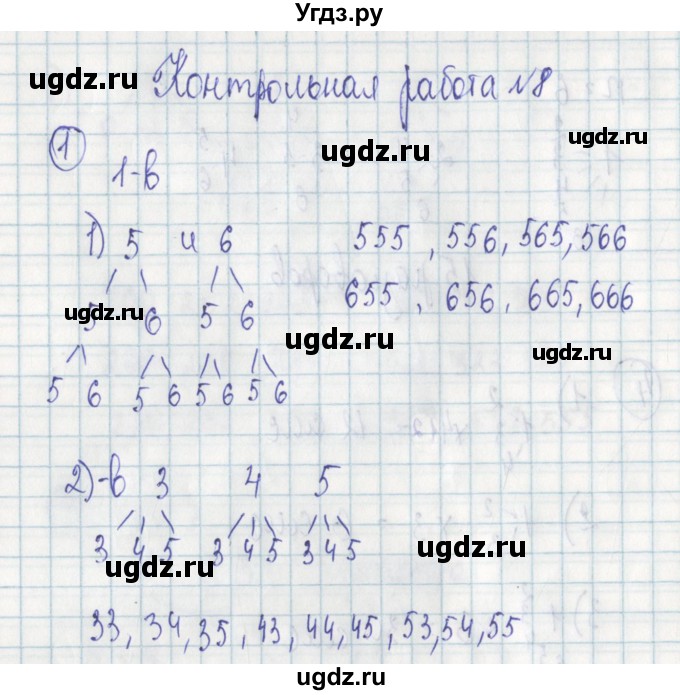 Угдз.ру
Контрольная работа №8
1
1-в
1) 5 и 6 555, 556, 565, 566
5 6 5 6 655, 656, 665, 666
5 6 5 6 5 6 5 6
2)-в 3 4 5
3 4 5 3 4 5 3 4 5
33, 34, 35, 43, 44, 45, 53, 54, 55
ugdz.ru
ugdz.ru
ugdz.ru
ugdz.ru
ugdz.ru
ugdz.ru
ugdz.ru
ugdz.ru
ugdz.ru
ugdz.ru
ugdz.ru
ugdz.ru